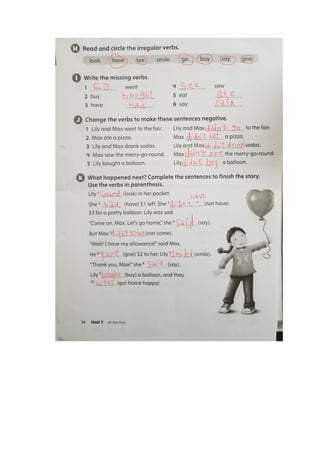 H Read and circle the irregular verbs.
look have see smile go buy say give
I Write the missing verbs.
1 Go went 4 See saw
2 buy bought 5 eat ate
3 have had 6 say said
J Change the verbs to make these sentences negative.
1 Lily and Max went to the fair. Lily and Max didn't go to the fair.
2 Max ate a pizza. Max didn't eat a pizza.
3 Lily and Max drank sodas. Lily and Max didn't drink sodas.
4 Max saw the merry-go-round. Max didn't see the merry-go-round.
5 Lily bought a balloon. Lily didn't buy a balloon.
K What happened next? Complete the sentences to finish the story.
Use the verbs in parenthesis.
Lily 1 looked (look) in her pocket.
have
She 2 had (have) $1 left. She 3 didn't (not have)
$3 for a pretty balloon. Lily was sad.
"Come on, Max. Let's go home," she 4 said (say).
But Max 5 didn't come (not come).
"Wait! I have my allowance!" said Max.
He 6 gave (give) $2 to her. Lily 7 smiled (smile).
"Thank you, Max!" she 8 said (say).
Lily 9 bought (buy) a balloon, and they
10 went (go) home happy!
Unit 7 At the Fair